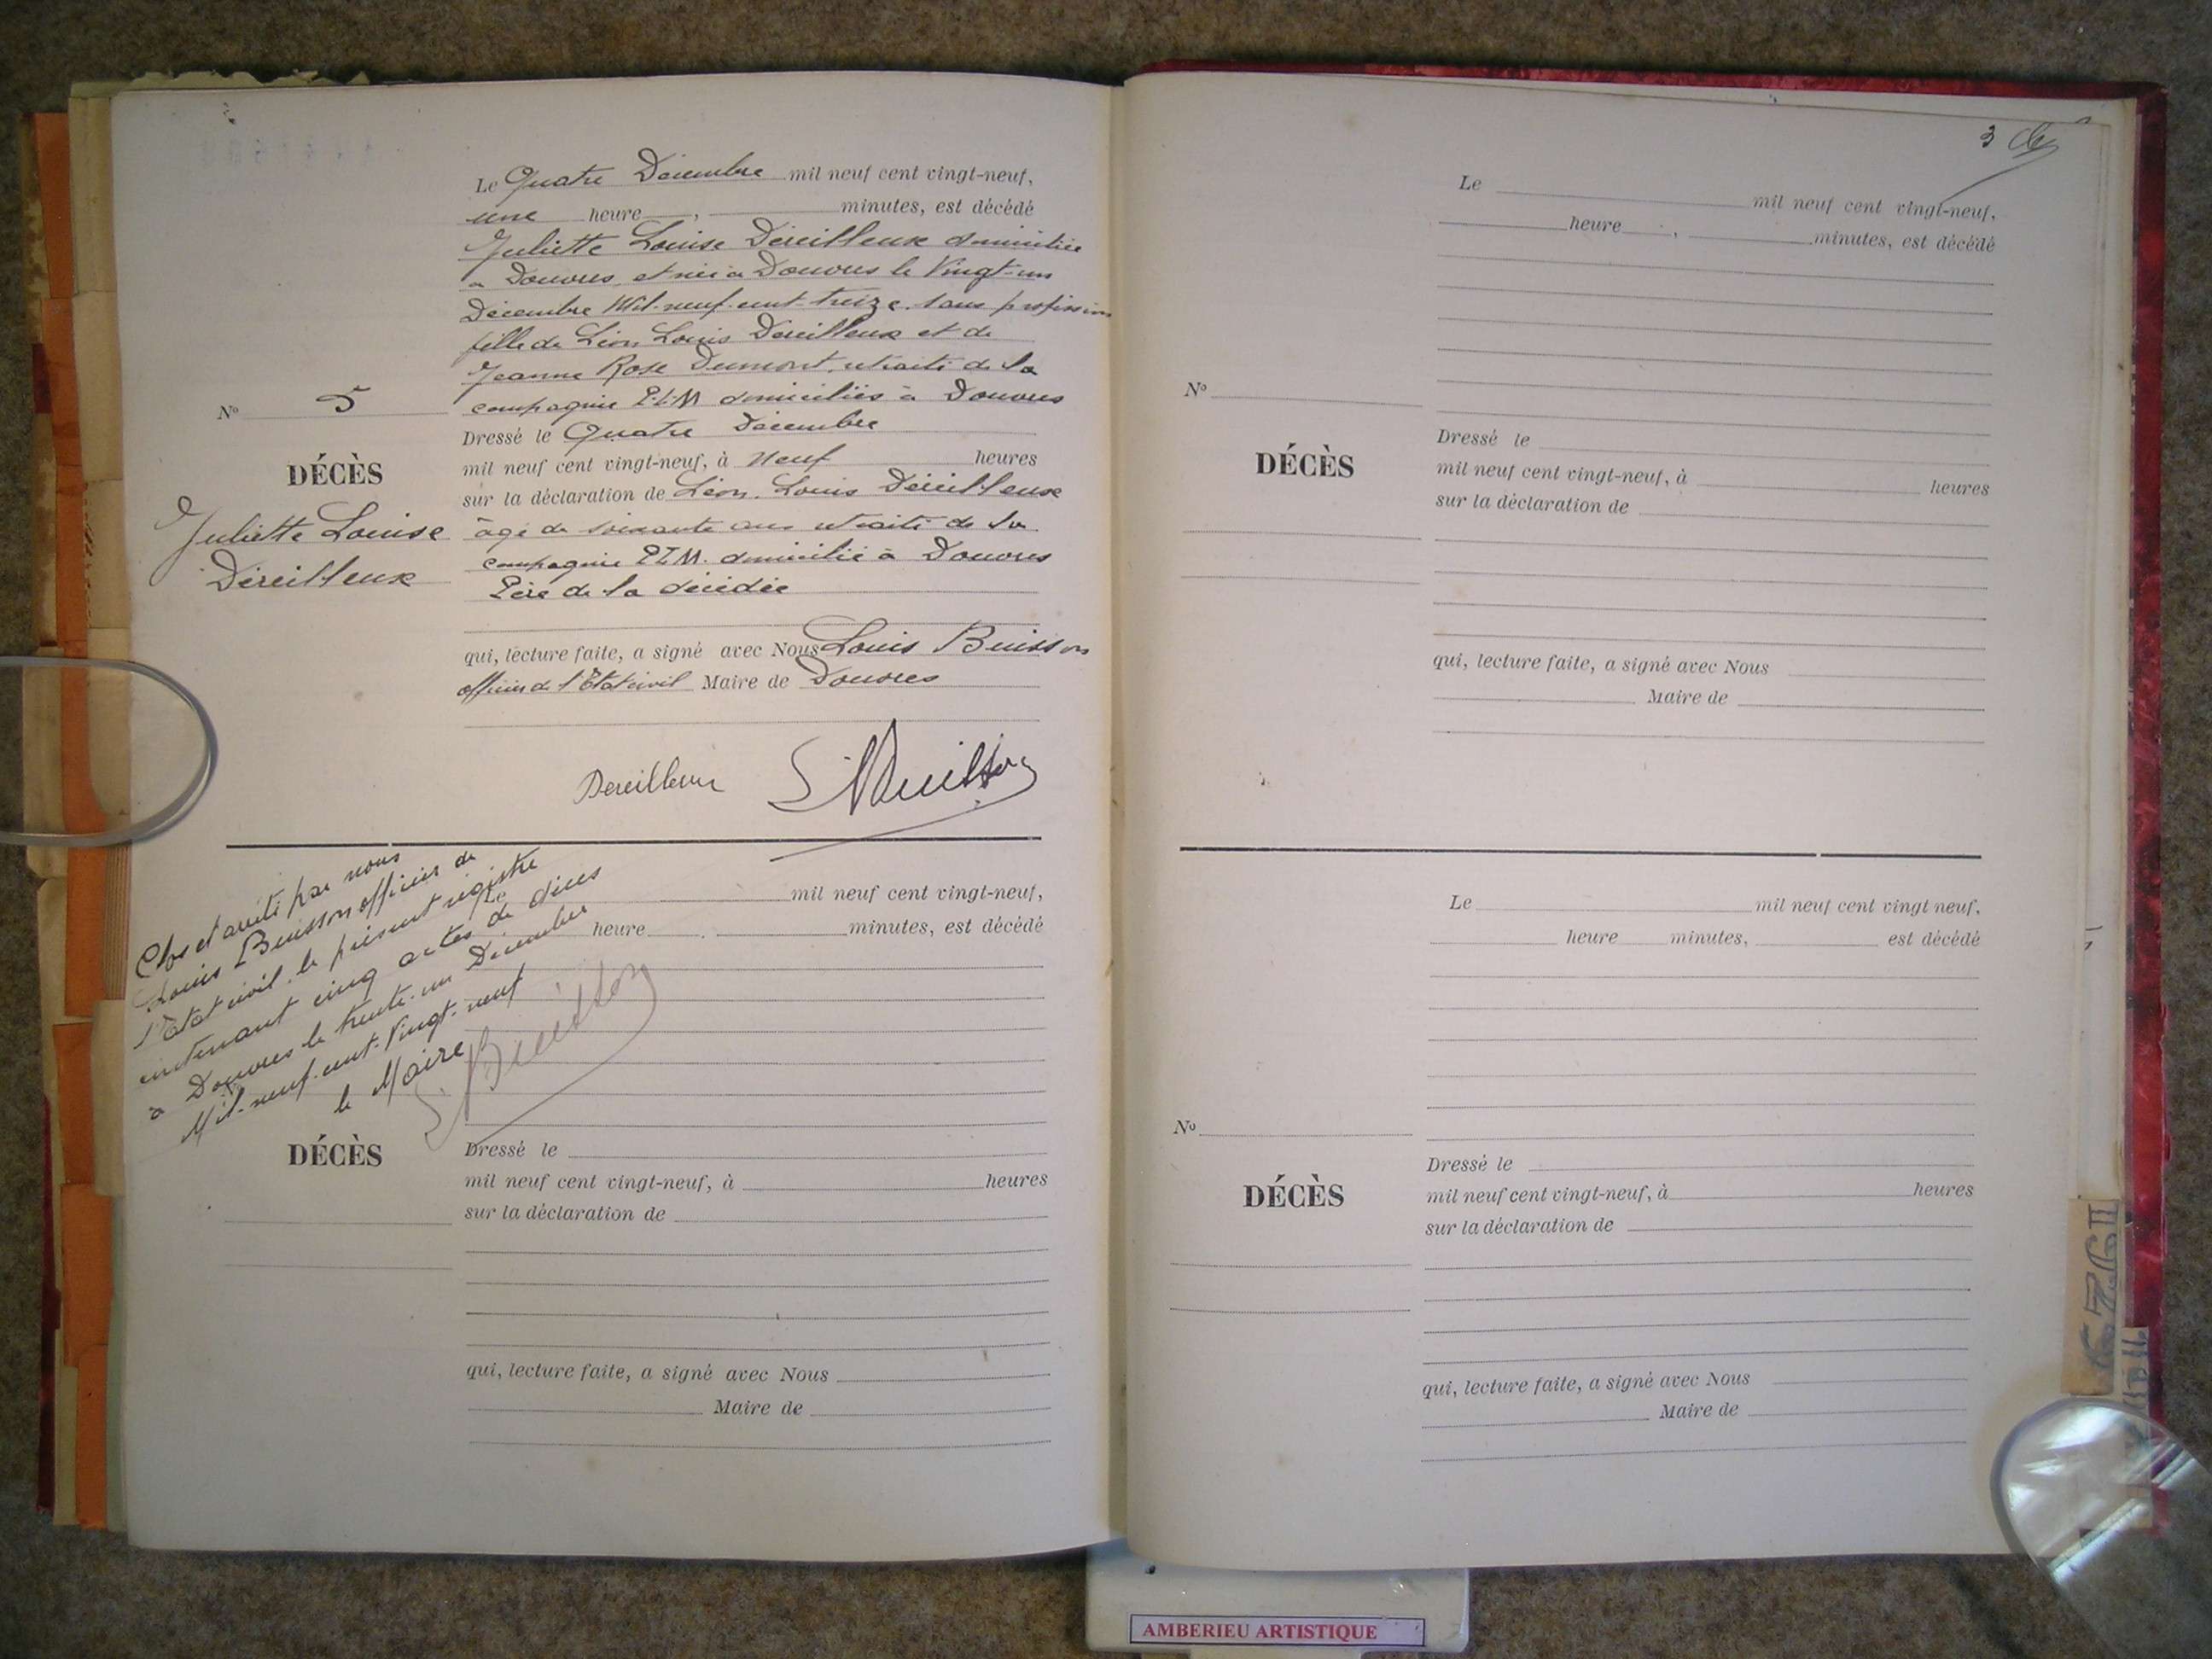 Le Quatre Décembre mil neuf cent vingt-neuf,
une heure , minutes, est décédé
Juliette Louise Déreilleux domiciliée
à Douvres, et née à Douvres le Vingt-un
Décembre Mil-neuf-cent-treize. sans profession
fille de Léon Louis Déreilleux et de
Jeanne Rose Dumont, retraité de la
compagnie P.L.M domiciliés à Douvres
Nº 5
DÉCÈS
Juliette Louise
Déreilleux
Dressé le Quatre Décembre
mil neuf cent vingt-neuf, à Neuf heures
sur la déclaration de Léon. Louis Déreilleux
âgé de soixante ans retraité de la
compagnie P.L.M. domicilié à Douvres
Père de la décédée
qui, lecture faite, a signé avec Nous Louis Buisson
officier de l'Etat civil Maire de Douvres
Dereilleux L. Buisson
Clos et arrêté par nous
Louis Buisson officier de
l'Etat civil le présent registre
contenant cinq actes de décès
à Douvres le trente-un Décembre
Mil-neuf-cent-Vingt-neuf
le Maire
L. Buisson
Le mil neuf cent vingt-neuf,
heure , minutes, est décédé
DÉCÈS
Dressé le
mil neuf cent vingt-neuf, à heures
sur la déclaration de
qui, lecture faite, a signé avec Nous
Maire de
3
Le mil neuf cent vingt-neuf,
heure , minutes, est décédé
Nº
DÉCÈS
Dressé le
mil neuf cent vingt-neuf, à heures
sur la déclaration de
qui, lecture faite, a signé avec Nous
Maire de
Le mil neuf cent vingt neuf,
heure minutes, est décédé
Nº
DÉCÈS
Dressé le
mil neuf cent vingt-neuf, à heures
sur la déclaration de
qui, lecture faite, a signé avec Nous
Maire de
AMBERIEU ARTISTIQUE